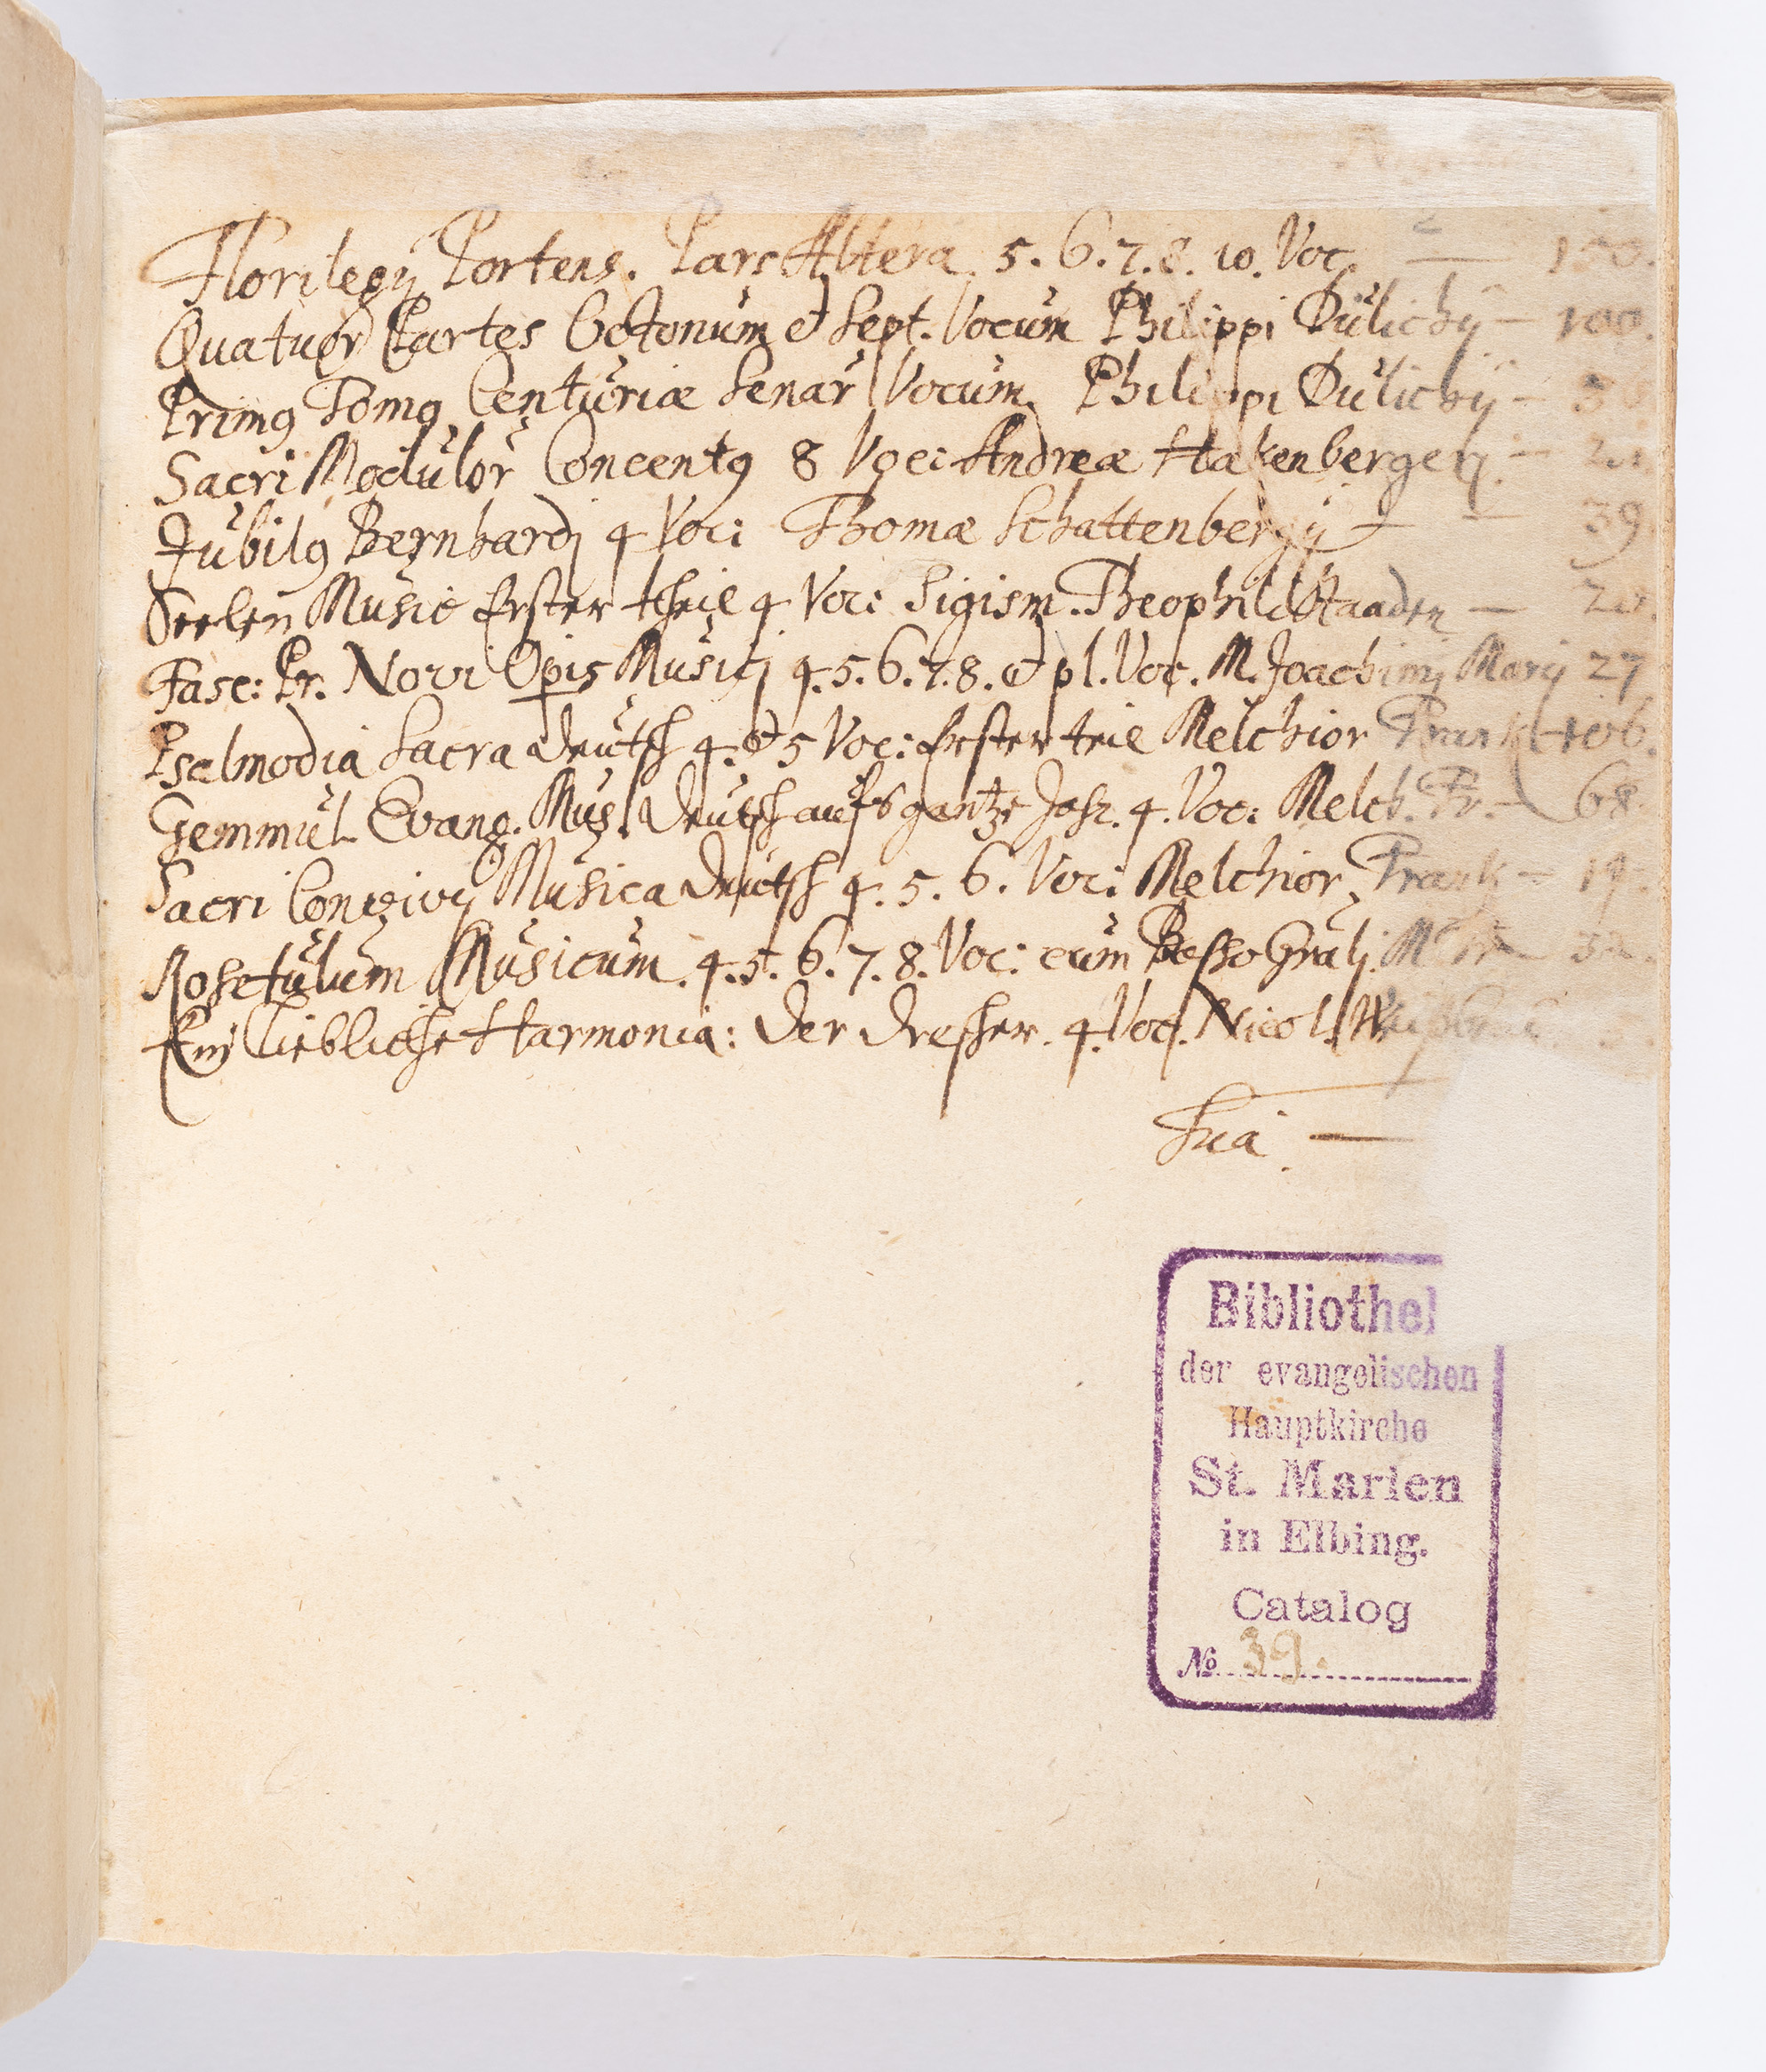 Florilegij Portens. Pars Altera. 5. 6. 7. 8. 10. Voc. — 150.
Quatuor Partes Octonum et Sept. Vocum Philippi Dulichij — 100.
Primꝰ Tomꝰ Centuriæ Senar Vocum. Philippi Dulichij —
Sacri Modulor Concentꝰ 8 Voc: Andreæ Hakenbergerj. —
Jubilꝰ Bernhardj 4 Voc: Thomæ Schattenbergij — 39
Seelen Music Erster theil 4 Voc: Sigism. Theophil Staaden — 20.
Fasc: Pr. Novi Opis Musicj 4. 5. 6. 7. 8. et pl. Voc. M. Joachimj Marij 27
Psalmodia Sacra deutsch 4. et 5 Voc: Erster teil Melchior Frank — 106.
Gemmul Evang. Mus. deutsch aufs gantze Jahr. 4. Voc: Melch. Fr. — 68.
Sacri Convivij Musica deutsch 4. 5. 6. Voc: Melchior Frank —
Rosetulum Musicum. 4. 5. 6. 7. 8. Voc: cum Basso Gnalj. M.
Ein liebliche Harmonia: der drescher. 4. Voc. Nicol.
Sua —
Bibliothek
der evangelischen
Hauptkirche
St. Marien
in Elbing.
Catalog
No 39.